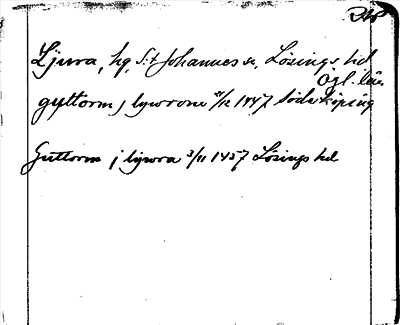 Ljura, hg, S:t Johannes sn, Lösings hd
Ögl. län
gyttorm j lywrom 21/12 1447 Söderköping
Guttorm j liwra 3/11 1457 Lösings hd